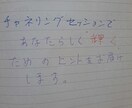 チャネリングセッションで
あなたらしく輝く
ためのヒントをお伝え
します。